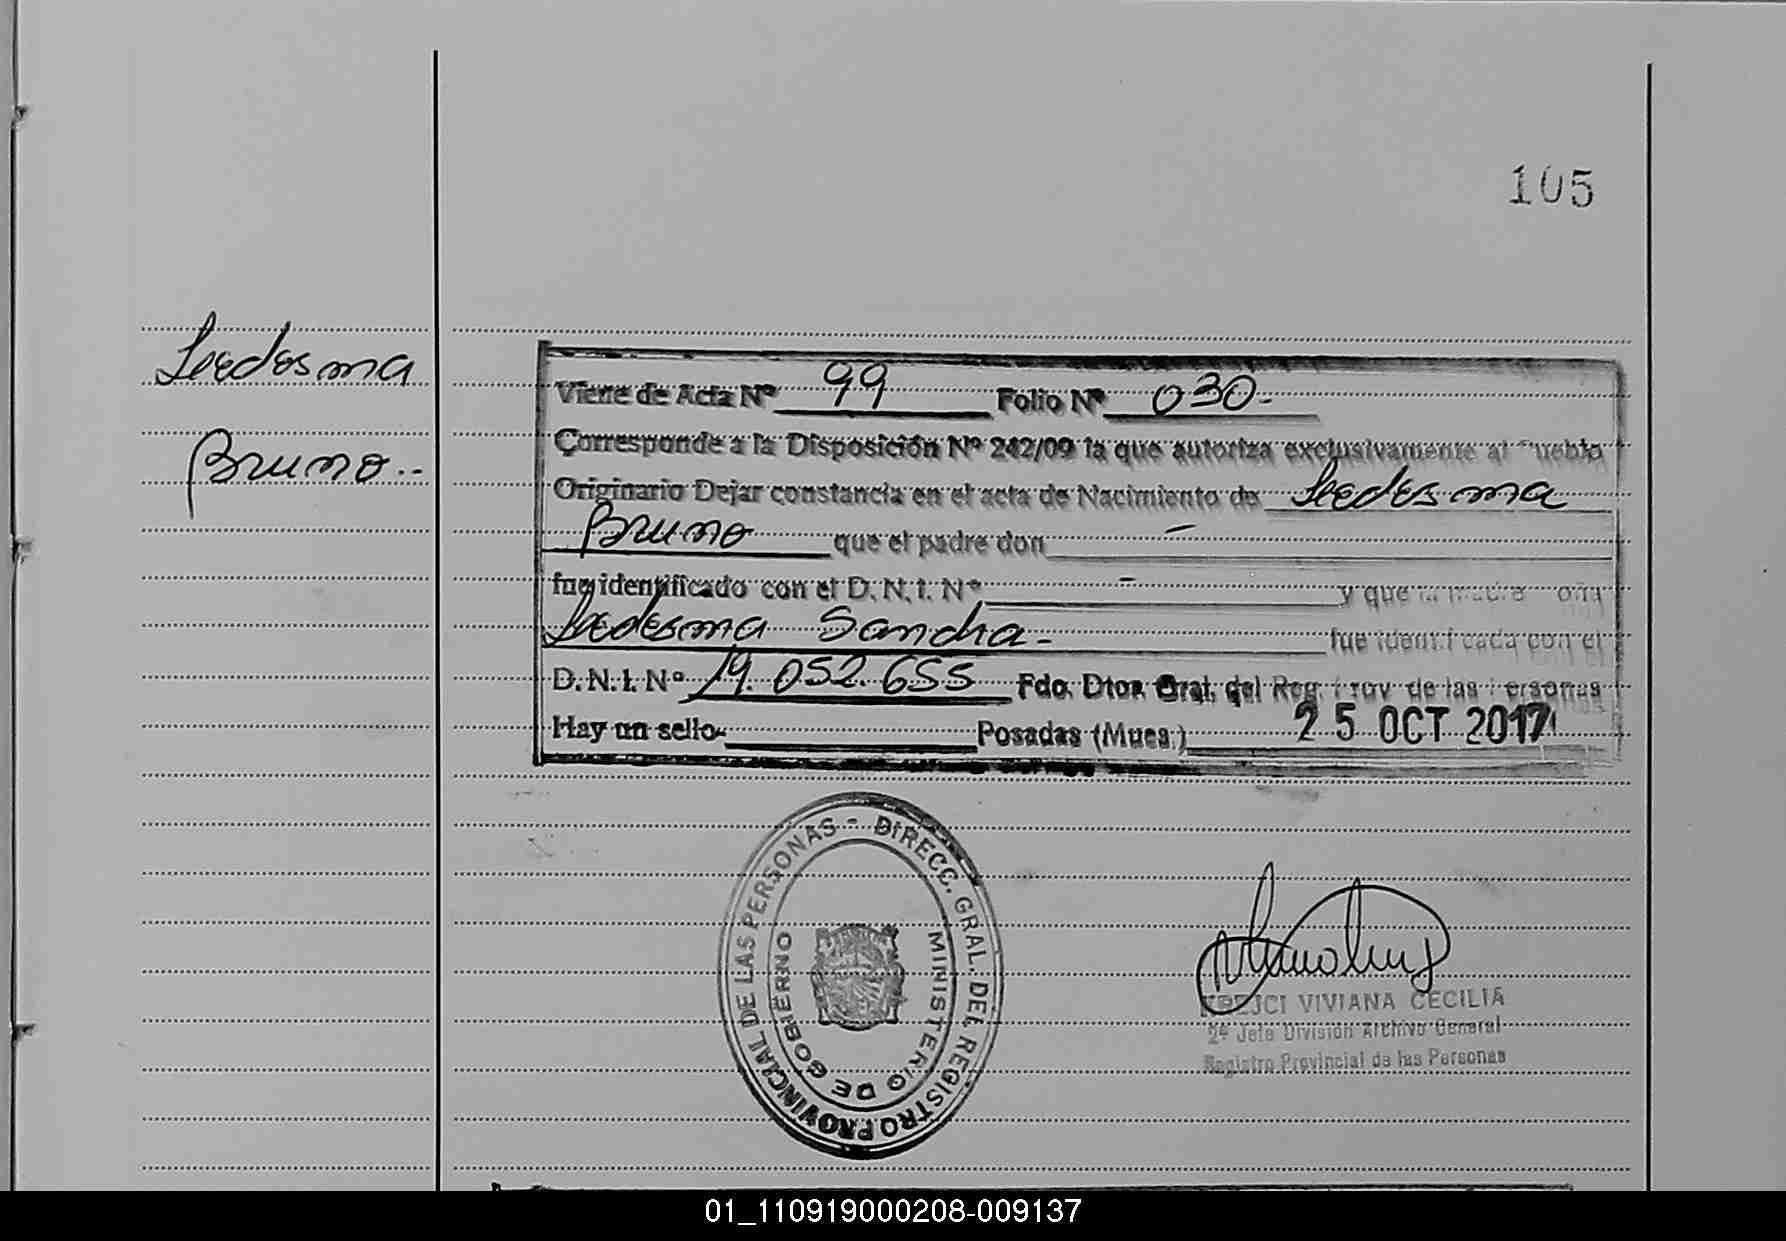 105
Ledesma
Bruno..
Viene de Acta Nº 99 Folio Nº 030.-
Corresponde a la Disposición Nº 242/09 la que autoriza exclusivamente al Pueblo
Originario Dejar constancia en el acta de Nacimiento de Ledesma
Bruno que el padre don -
fue identificado con el D.N.I. Nº - y que la madre doña
Ledesma Sandra.- fue identificada con el
D.N.I. Nº 19.052.655 Fdo. Dtor. Gral. del Reg. Prov. de las Personas
Hay un sello- Posadas (Mnes.) 25 OCT 2017
DIRECC. GRAL. DEL REGISTRO PROVINCIAL DE LAS PERSONAS -
MINISTERIO DE GOBIERNO
VIVIANA CECILIA
2º Jefe División Archivo General
Registro Provincial de las Personas
01_110919000208-009137